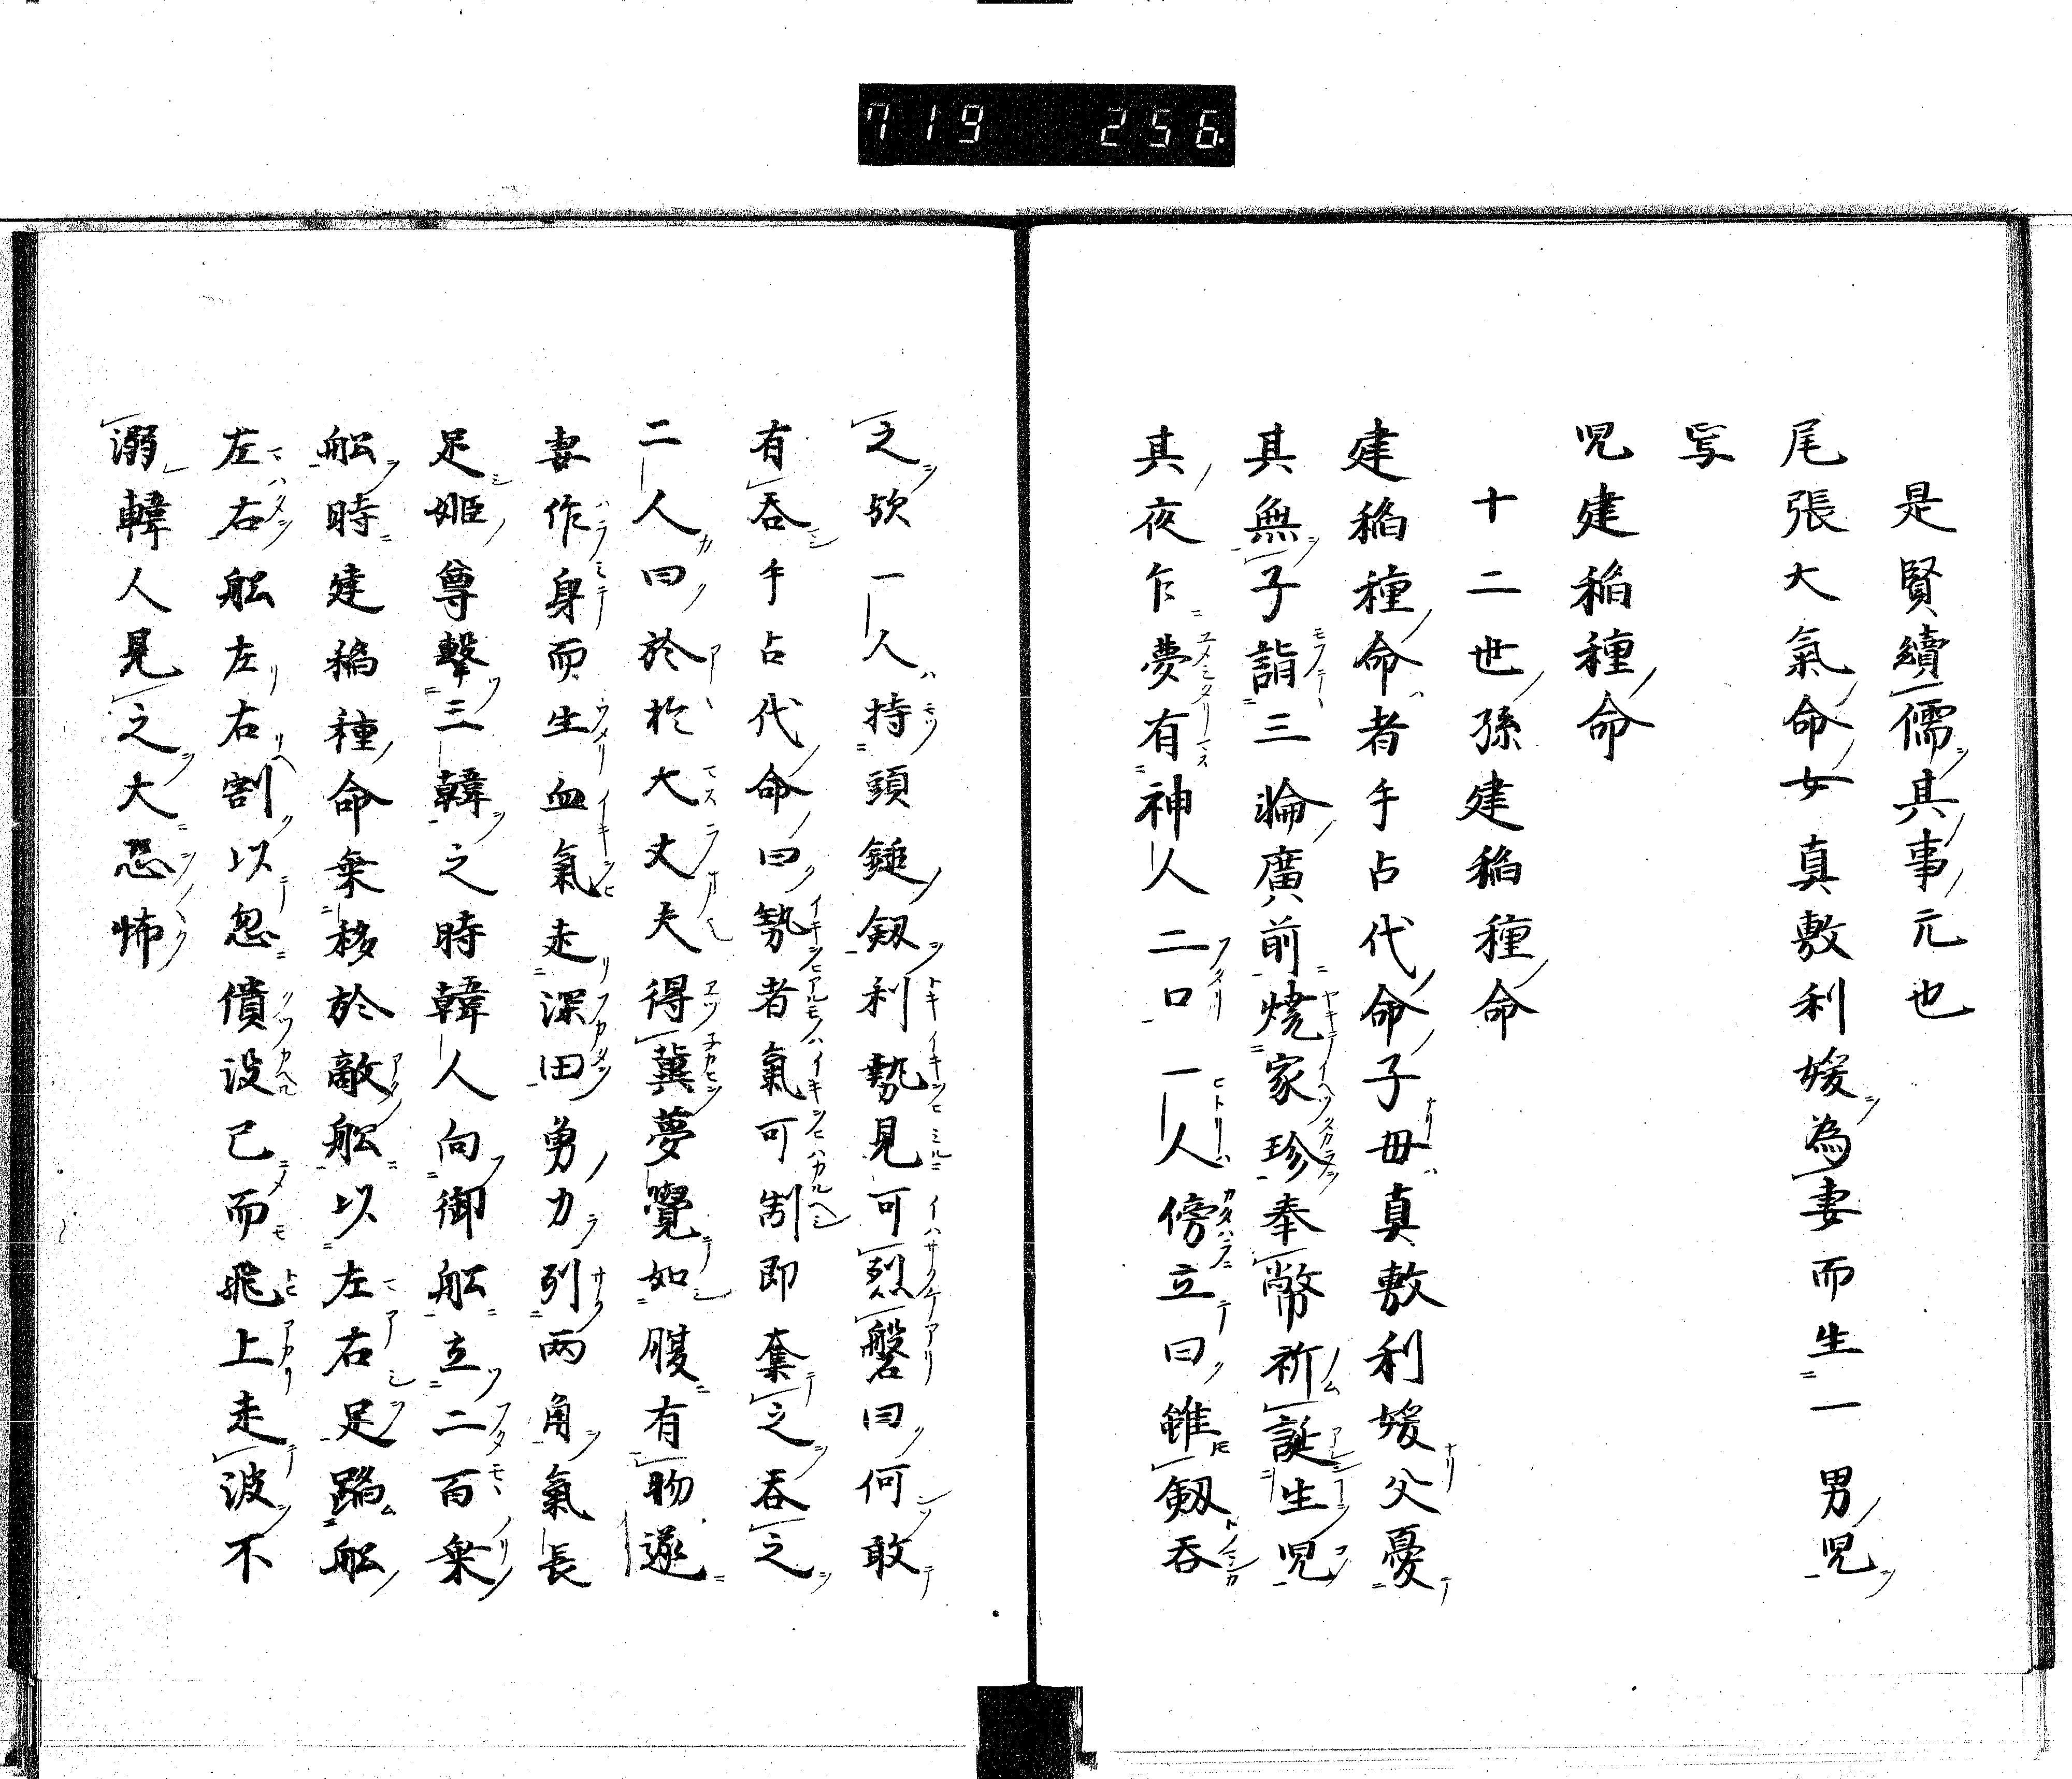 719 256.
是賢續儒其事元也
尾張大氣命女真敷利媛為妻而生一男児
写
児建稲種命
十二世孫建稲種命
建稲種命者手占代命子母真敷利媛父憂
其無子詣三輪廣前焼家珍奉幣祈誕生児
其夜乍夢有神人二口一人傍立曰雖釼呑
之欤一人持頭鎚釼利勢見可烈磐曰何敢
有呑手占代命曰勢者氣可制即奪之呑之
二人曰於於大丈夫得冀夢覺如腹有物遂
妻作身而生血氣走深田勇力列兩角氣長
足姫尊擊三韓之時韓人向御舩立二百乗
舩時建稲種命乗移於敵舩以左右足蹈舩
左右舩左右割以忽僨没已而飛上走波不
溺韓人見之大恐怖